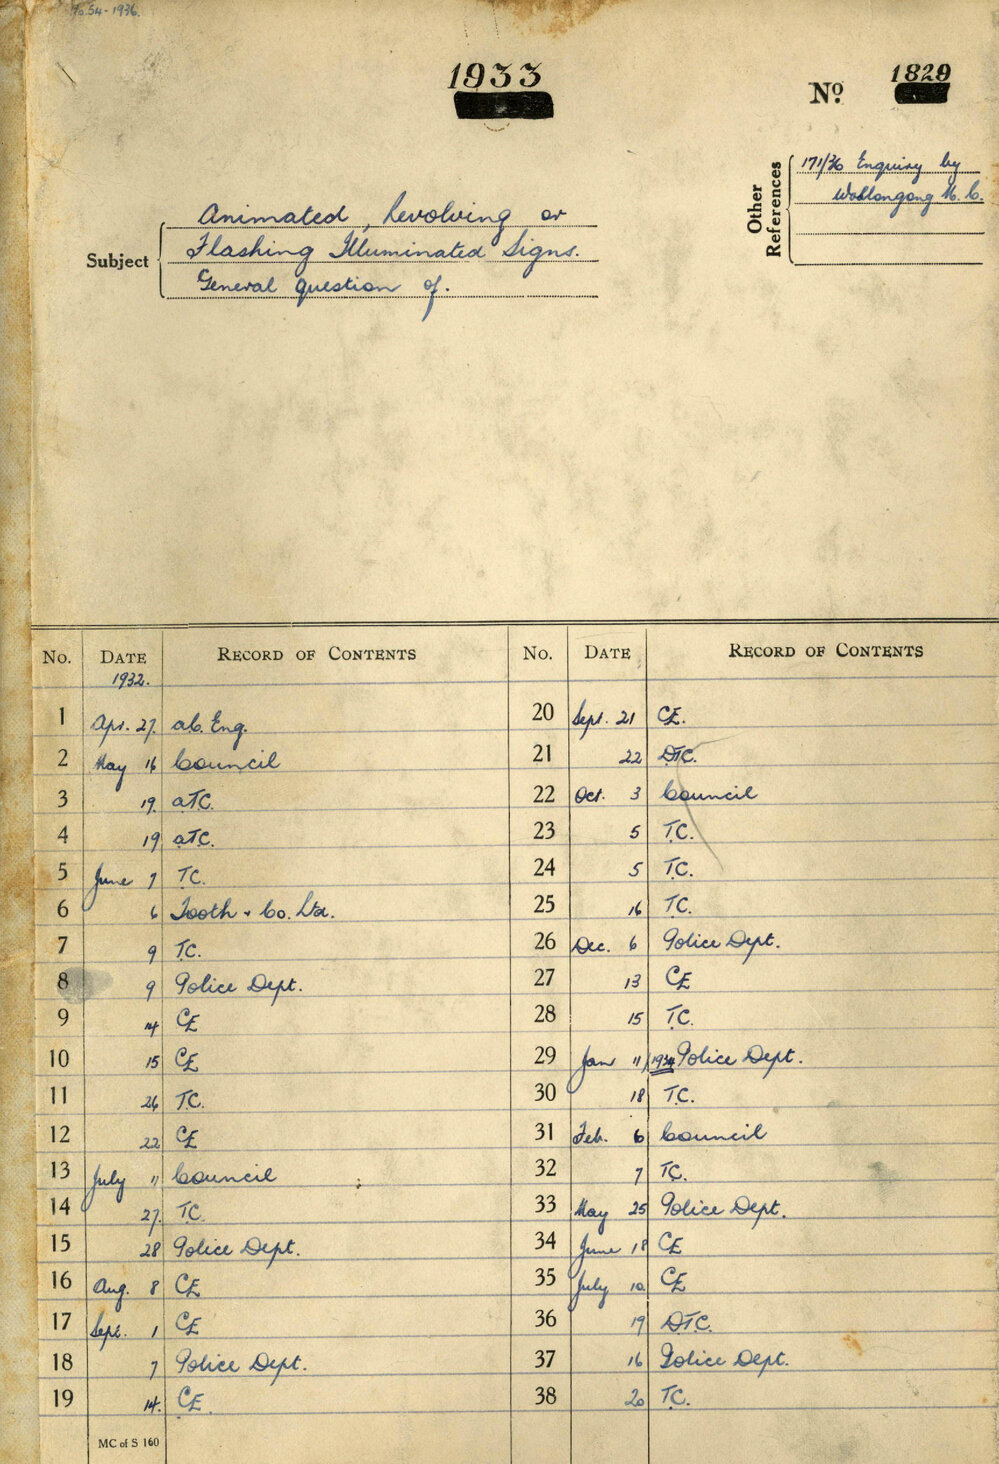 1933
No. 1829
Other References
171/36 Enquiry by
Wollongong M.C.
Subject
Animated, Revolving or
Flashing Illuminated Signs.
General question of.
No. DATE RECORD OF CONTENTS
1932.
1 Apr. 27. Eng.
2 May 16 Council
3 19. ATC.
4 19 ATC.
5 June 7 T.C.
6 6 Tooth & Co. Ltd.
7 9 T.C.
8 9 Police Dept.
9 14 CE
10 15 CE
11 26 T.C.
12 22 CE
13 July 11 Council
14 27. T.C.
15 28 Police Dept.
16 Aug. 8 CE
17 Sept. 1 CE
18 7 Police Dept.
19 14. CE.
MC of S 160
No. DATE RECORD OF CONTENTS
20 Sept. 21 CE.
21 22 DTC.
22 Oct. 3 Council
23 5 T.C.
24 5 T.C.
25 16 T.C.
26 Dec. 6 Police Dept.
27 13 CE
28 15 T.C.
29 Jan 11 Police Dept.
30 18 T.C.
31 Feb. 6 Council
32 7 T.C.
33 May 25 Police Dept.
34 June 18 CE
35 July 10 CE
36 19 DTC.
37 16 Police Dept.
38 20 T.C.